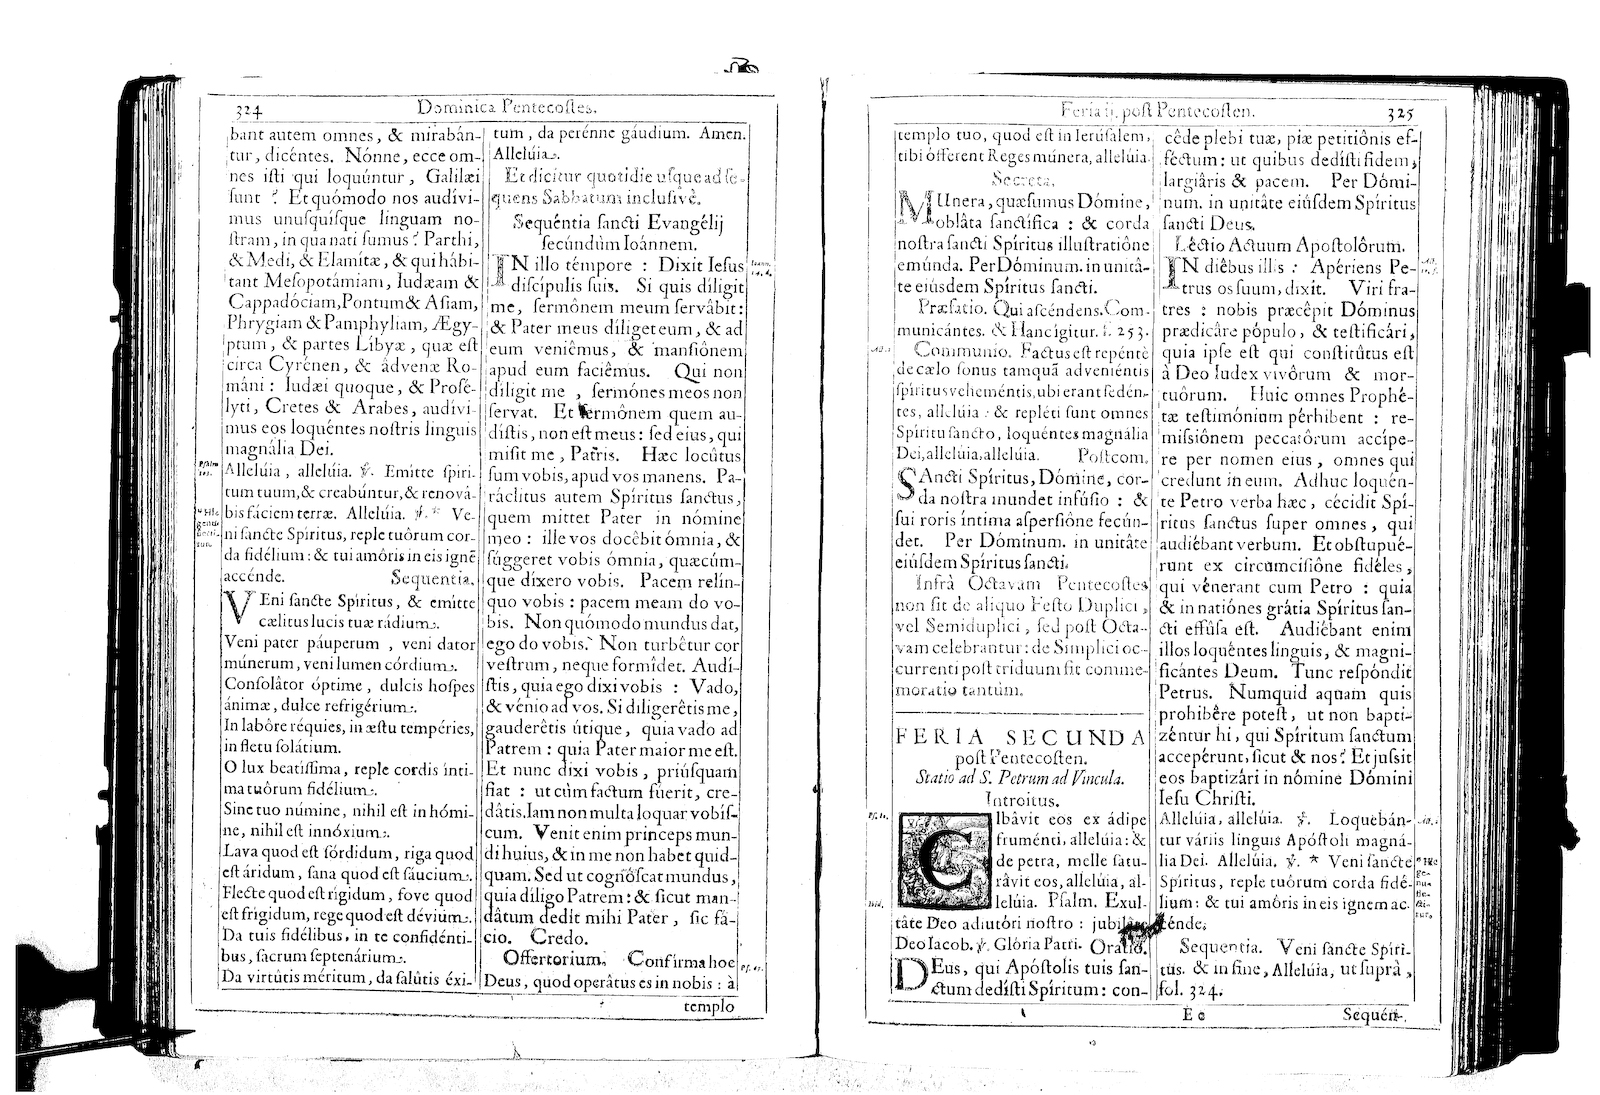 324 Dominica Pentecoſtes.
bant autem omnes, & mirabán-
tur, dicéntes. Nónne, ecce om-
nes iſti qui loquúntur, Galilæi
ſunt? Et quómodo nos audívi-
mus unuſquíſque linguam no-
ſtram, in qua nati ſumus? Parthi,
& Medi, & Elamítæ, & qui hábi-
tant Meſopotámiam, Iudæam &
Cappadóciam, Pontum & Aſiam,
Phrygiam & Pamphyliam, Ægy-
ptum, & partes Libyæ, quæ eſt
circa Cyrénen, & ádvenæ Ro-
máni: Iudæi quoque, & Proſé-
lyti, Cretes & Arabes, audívi-
mus eos loquéntes noſtris linguis
magnália Dei.
Allelúia, allelúia. ℣. Emitte ſpiri-
tum tuum, & creabúntur, & renová-
bis fáciem terræ. Allelúia. ℣.* Ve-
ni ſancte Spíritus, reple tuôrum cor-
da fidélium: & tui amôris in eis ignẽ
accénde. Sequentia.
VEni ſancte Spíritus, & emitte
cælitus lucis tuæ rádium.
Veni pater páuperum, veni dator
múnerum, veni lumen córdium.
Conſolâtor óptime, dulcis hoſpes
ánimæ, dulce refrigérium.
In labôre réquies, in æſtu tempéries,
in fletu ſolátium.
O lux beatíſſima, reple cordis ínti-
ma tuôrum fidélium.
Sine tuo númine, nihil eſt in hómi-
ne, nihil eſt innóxium.
Lava quod eſt ſórdidum, riga quod
eſt áridum, ſana quod eſt ſáucium.
Flecte quod eſt rígidum, fove quod
eſt frígidum, rege quod eſt dévium.
Da tuis fidélibus, in te confidénti-
bus, ſacrum ſeptenárium.
Da virtûtis méritum, da ſalûtis éxi-
tum, da perénne gáudium. Amen.
Allelúia.
Et dicitur quotidie uſque ad ſe-
quens Sabbatum incluſivè.
Sequéntia ſancti Evangélij
ſecúndùm Ioánnem.
IN illo témpore: Dixit Ieſus
diſcípulis ſuis. Si quis díligit
me, ſermónem meum ſervâbit:
& Pater meus díliget eum, & ad
eum veniêmus, & manſiônem
apud eum faciêmus. Qui non
díligit me, ſermónes meos non
ſervat. Et ſermônem quem au-
díſtis, non eſt meus: ſed eius, qui
miſit me, Patris. Hæc locûtus
ſum vobis, apud vos manens. Pa-
ráclitus autem Spíritus ſanctus,
quem mittet Pater in nómine
meo: ille vos docêbit ómnia, &
ſúggeret vobis ómnia, quæcúm-
que díxero vobis. Pacem relín-
quo vobis: pacem meam do vo-
bis. Non quómodo mundus dat,
ego do vobis. Non turbêtur cor
veſtrum, neque formîdet. Audí-
ſtis, quia ego dixi vobis: Vado,
& vénio ad vos. Si diligerêtis me,
gauderêtis útique, quia vado ad
Patrem: quia Pater maior me eſt.
Et nunc dixi vobis, priúſquam
fiat: ut cùm factum fúerit, cre-
dâtis. Iam non multa loquar vobíſ-
cum. Venit enim prínceps mun-
di huius, & in me non habet quid-
quam. Sed ut cognóſcat mundus,
quia díligo Patrem: & ſicut man-
dâtum dedit mihi Pater, ſic fá-
cio. Credo.
Offertorium. Confírma hoc
Deus, quod operâtus es in nobis: à
templo
Feria ij. poſt Pentecoſten. 325
templo tuo, quod eſt in Ierúſalem,
tibi ófferent Reges múnera, allelúia.
Secreta.
MUnera, quæſumus Dómine,
oblâta ſanctífica: & corda
noſtra ſancti Spíritus illuſtratiône
emúnda. Per Dóminum. in unitâ-
te eiúsdem Spíritus ſancti.
Præfatio. Qui aſcéndens. Com-
municántes. & Hanc ígitur. f. 253.
Communio. Factus eſt repénte
de cælo ſonus tamquã adveniéntis
ſpíritus veheméntis, ubi erant ſedén-
tes, allelúia: & repléti ſunt omnes
Spíritu ſancto, loquéntes magnália
Dei, allelúia, allelúia. Poſtcom.
SAncti Spíritus, Dómine, cor-
da noſtra mundet infúſio: &
ſui roris íntima aſperſiône fecún-
det. Per Dóminum. in unitâte
eiúſdem Spíritus ſancti.
Infrà Octavam Pentecoſtes
non fit de aliquo Feſto Duplici,
vel Semiduplici, ſed poſt Octa-
vam celebrantur: de Simplici oc-
currenti poſt triduum fit comme-
moratio tantùm.
FERIA SECUNDA
poſt Pentecoſten.
Statio ad S. Petrum ad Vincula.
Introitus.
CIbâvit eos ex ádipe
fruménti, allelúia: &
de petra, melle ſatu-
râvit eos, allelúia, al-
lelúia. Pſalm. Exul-
tâte Deo adiutóri noſtro: jubilâte
Deo Iacob. ℣. Glória Patri. Oratio.
DEus, qui Apóſtolis tuis ſan-
ctum dedíſti Spíritum: con-
céde plebi tuæ, piæ petitiônis ef-
féctum: ut quibus dedíſti fidem,
largiâris & pacem. Per Dómi-
num. in unitâte eiúſdem Spíritus
ſancti Deus.
Léctio Actuum Apoſtolôrum.
IN diêbus illis: Apériens Pe-
trus os ſuum, dixit. Viri fra-
tres: nobis præcêpit Dóminus
prædicâre pópulo, & teſtificári,
quia ipſe eſt qui conſtitûtus eſt
à Deo Iudex vivôrum & mor-
tuôrum. Huic omnes Prophé-
tæ teſtimónium pérhibent: re-
miſſiônem peccatôrum accípe-
re per nomen eius, omnes qui
credunt in eum. Adhuc loquén-
te Petro verba hæc, cécidit Spí-
ritus ſanctus ſuper omnes, qui
audiêbant verbum. Et obſtupué-
runt ex circumciſiône fidéles,
qui vénerant cum Petro: quia
& in natiónes grátia Spíritus ſan-
cti effûſa eſt. Audiêbant enim
illos loquéntes linguis, & magni-
ficántes Deum. Tunc reſpóndit
Petrus. Numquid aquam quis
prohibêre poteſt, ut non bapti-
zéntur hi, qui Spíritum ſanctum
accepérunt, ſicut & nos? Et juſsit
eos baptizári in nómine Dómini
Ieſu Chriſti.
Allelúia, allelúia. ℣. Loquebán-
tur váriis linguis Apóſtoli magná-
lia Dei. Allelúia. ℣. * Veni ſancte
Spíritus, reple tuôrum corda fidé-
lium: & tui amôris in eis ignem ac-
cénde.
Sequentia. Veni ſancte Spíri-
tus. & in fine, Allelúia, ut ſuprà,
fol. 324.
E e Sequén-